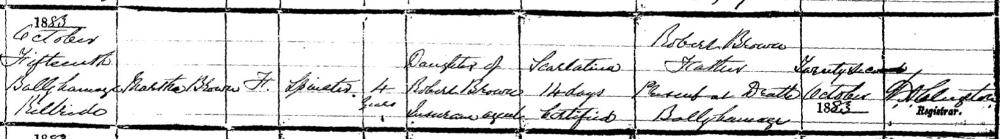 1883
October
Fifteenth
Ballyhamage
Kilbride
Martha Brown
F.
Spinster
4
years
Daughter of
Robert Brown
Insurance agent
Scarlatina
14 days
Certified
Robert Brown
Father
Present at Death
Ballyhamage
Twenty second
October
1883
Registrar.
1883